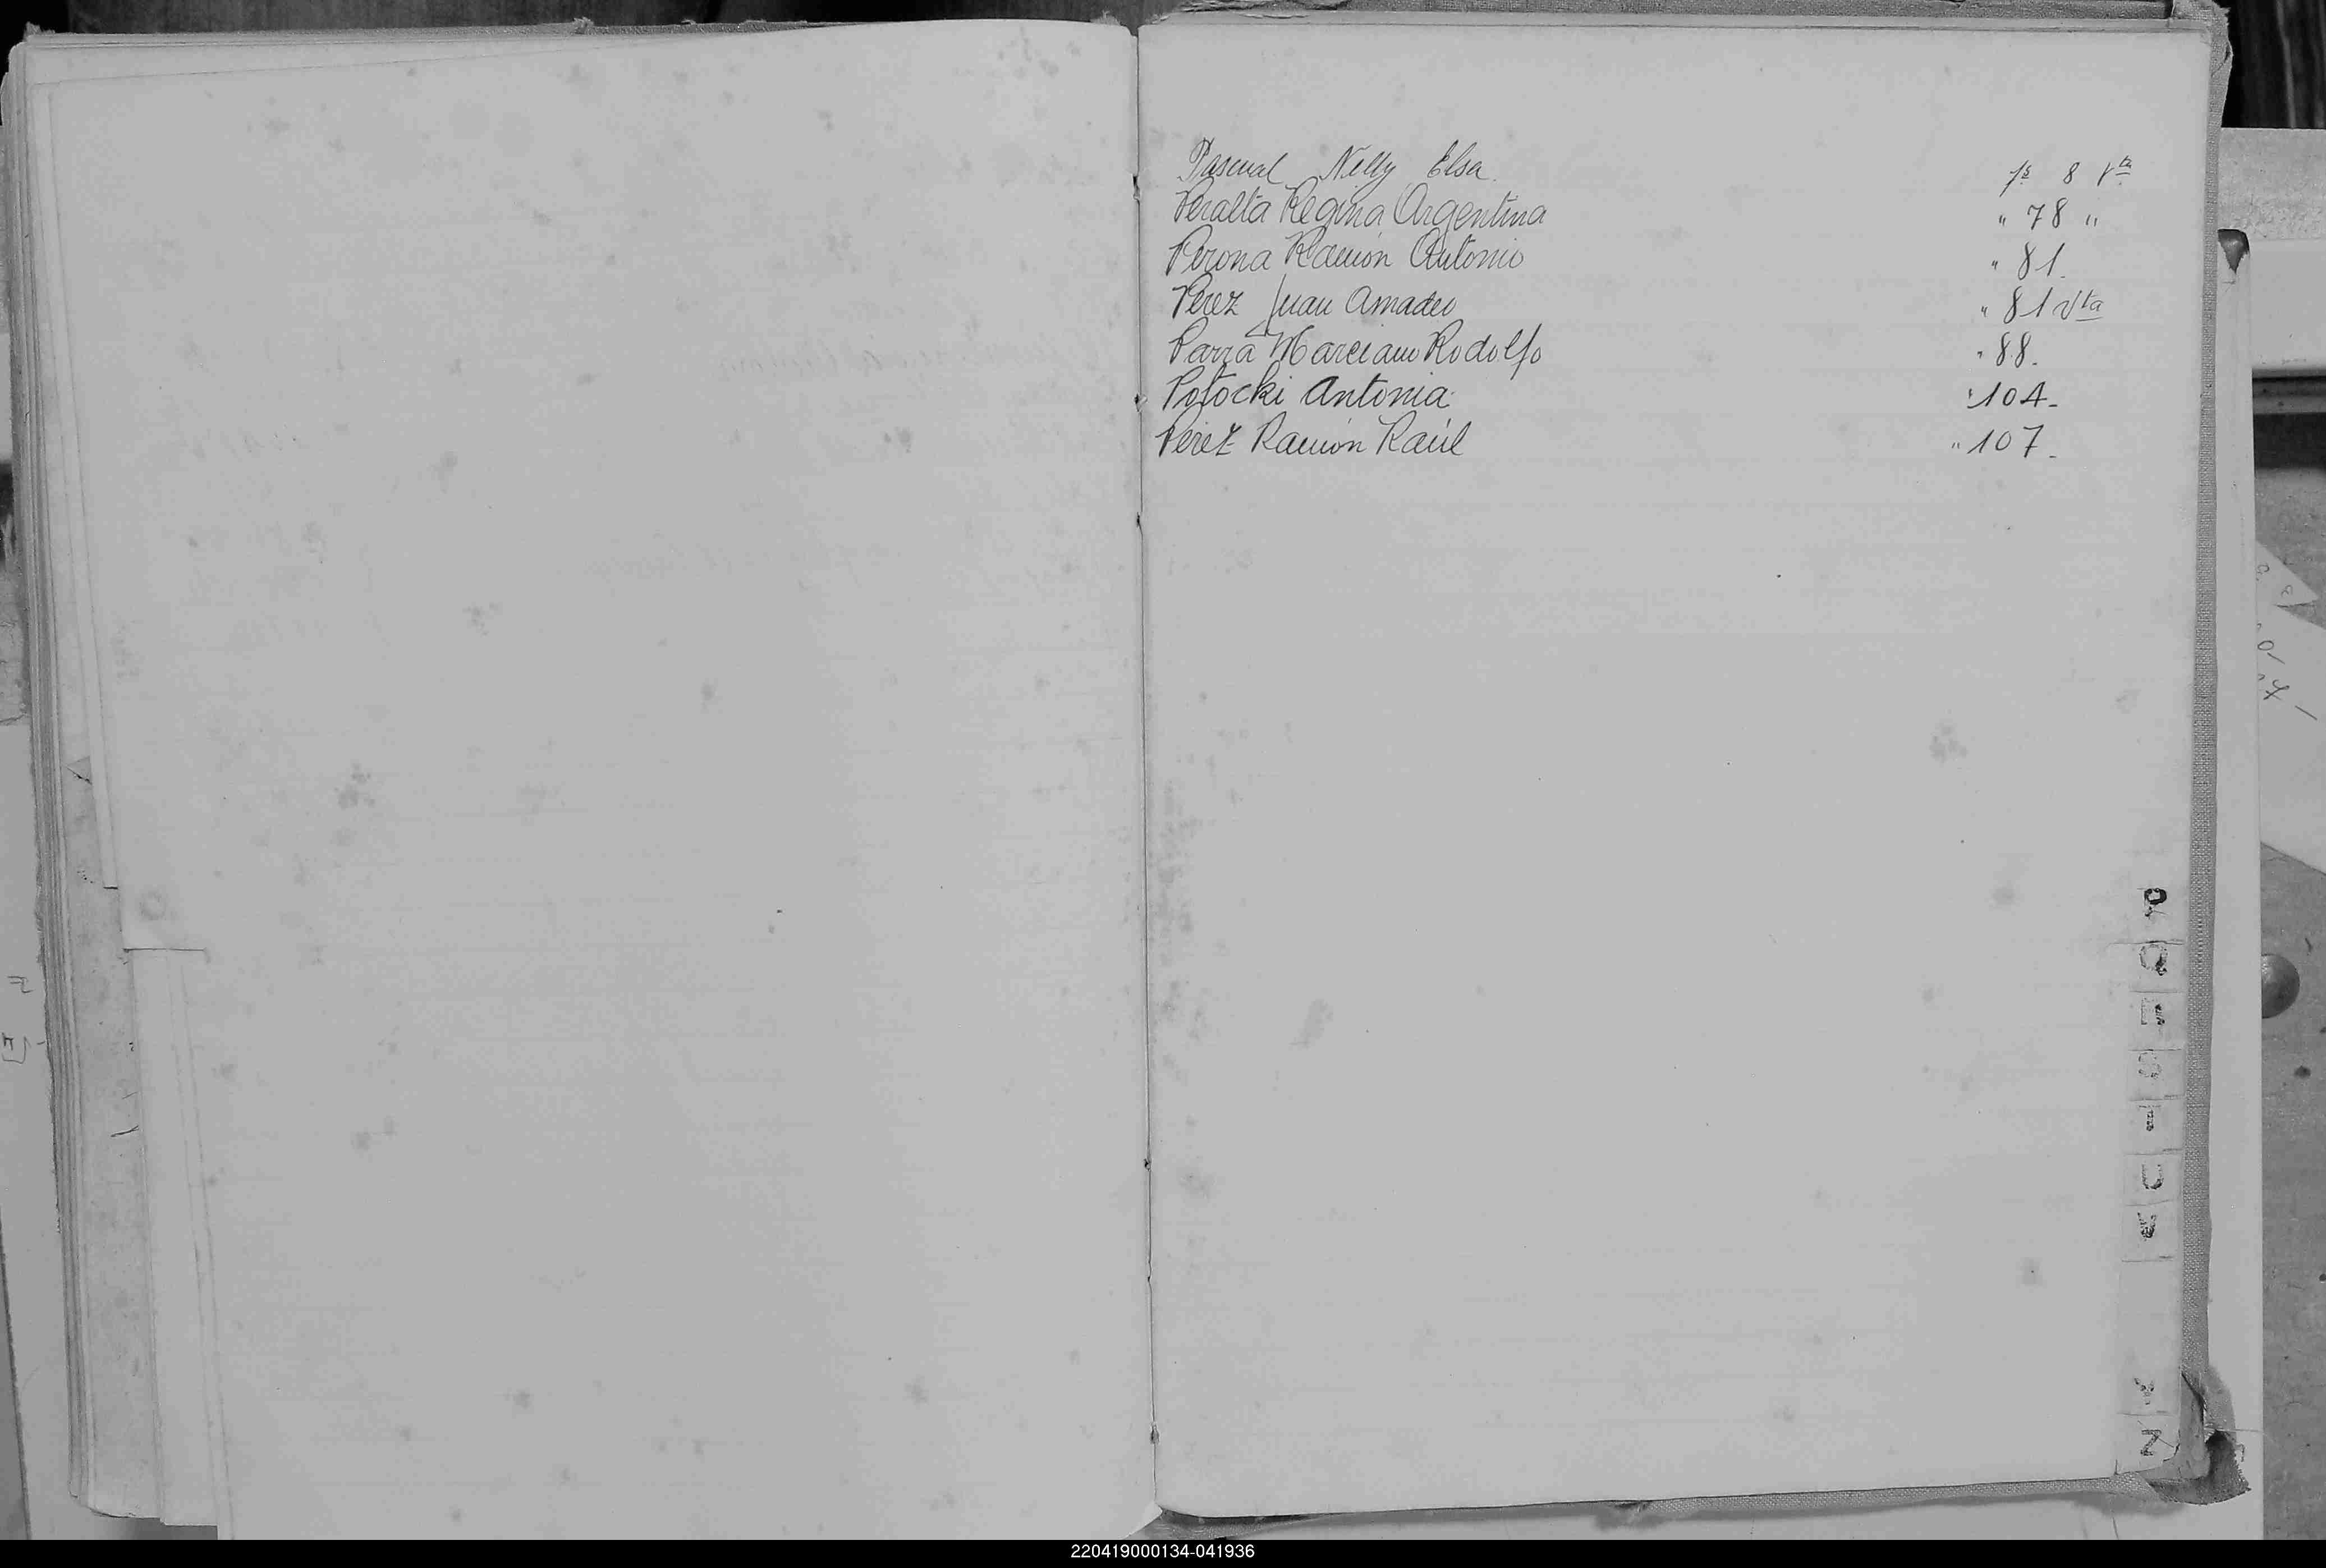 Pascual Nelly Elsa. fs 8 Vta
Peralta Regina Argentina " 78 "
Perona Ramón Antonio " 81.
Perez Juan Amadeo " 81 Vta
Parra Marciano Rodolfo " 88.
Potocki Antonia " 104-
Perez Ramón Raúl " 107.
P
Q
R
S
T
U
V
Y
Z
220419000134-041936